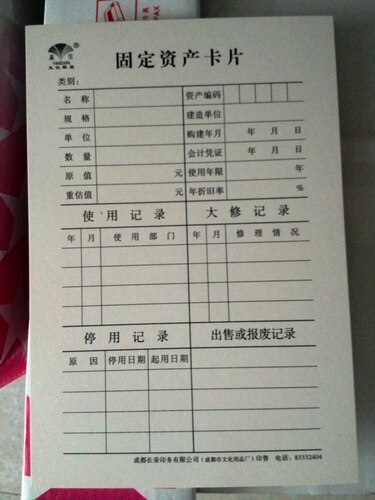 FAX
YINGXIN
固定资产卡片
类别：
名称 资产编码
规格 建造单位
单位 购建年月 年 月 日
数量 会计凭证 年 月 日
原值 元 使用年限 年
重估值 元 年折旧率 %
使用记录 大修记录
年 月 使用部门 年 月 修理情况
停用记录 出售或报废记录
原因 停用日期 起用日期
成都长荣印务有限公司（成都市文化用品厂）印售 电话：83332404